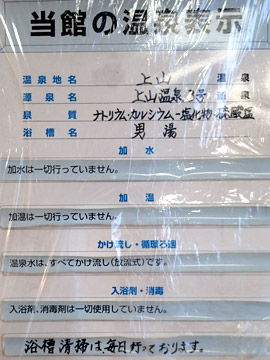 当館の温泉表示
温泉地名 上山 温泉
源泉名 上山温泉3号 源泉
泉質 ナトリウム・カルシウム-塩化物・硫酸塩
浴槽名 男湯
加水
加水は一切行っていません。
加温
加温は一切行っていません。
かけ流し・循環ろ過
温泉水は、すべてかけ流し(放流式)です。
入浴剤・消毒
入浴剤、消毒剤は一切使用していません。
浴槽清掃は毎日行っております。